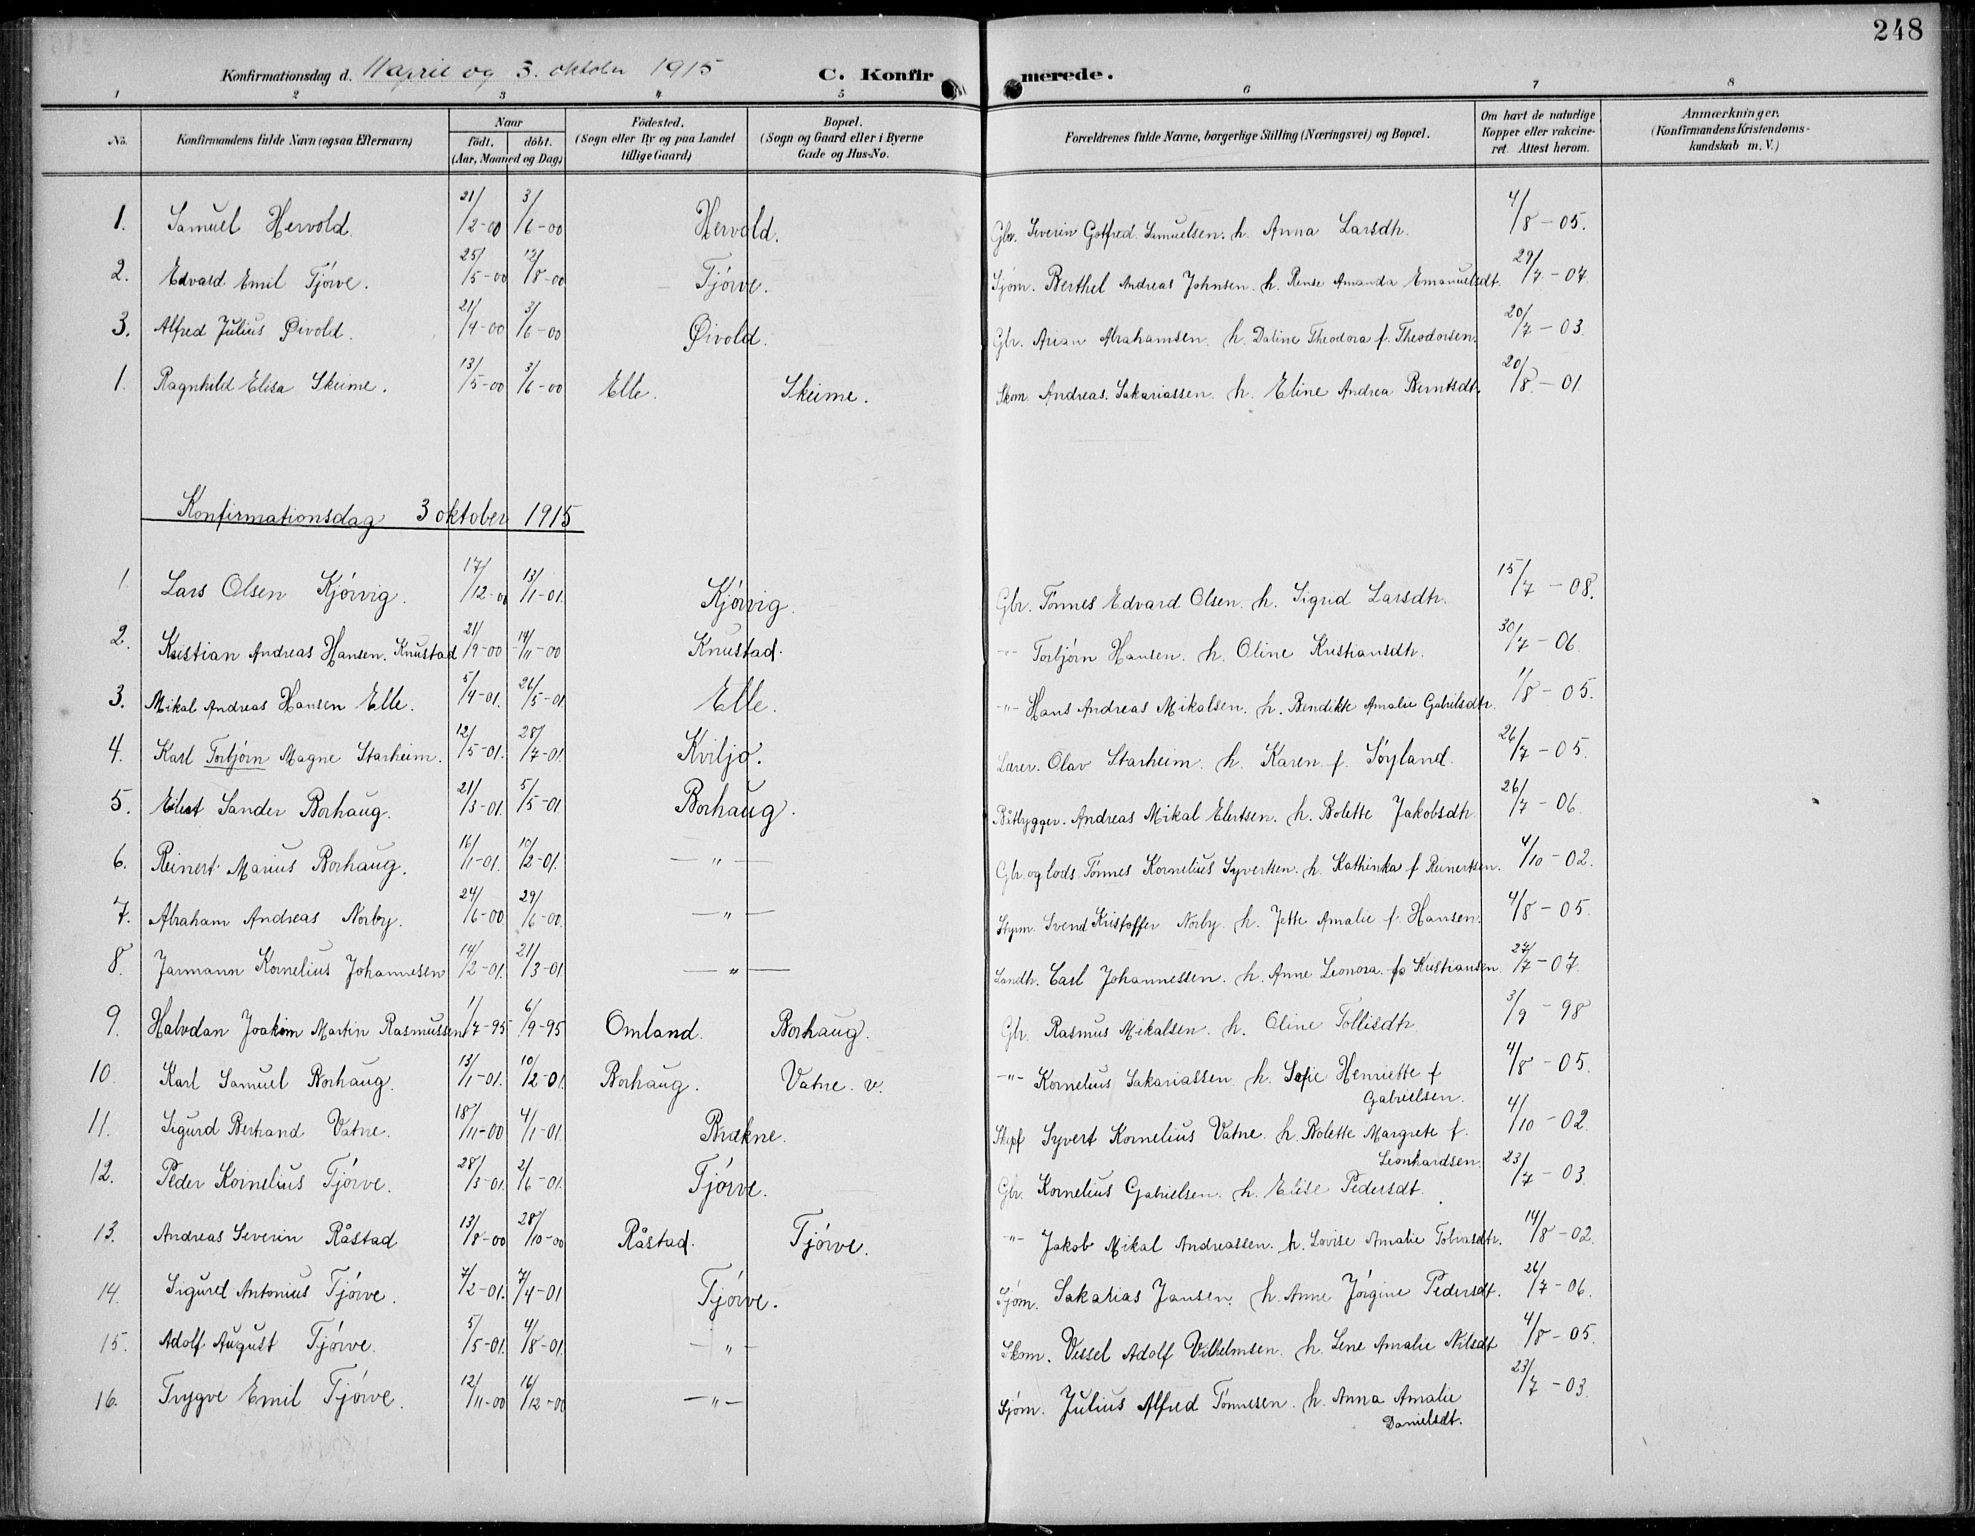 248
Konfirmationsdag d. 11 april og 3. oktober 1915 C. Konfirmerede.
1 2 3 4 5 6 7 8
No. Konfirmandens fulde Navn (ogsaa Efternavn) Naar født. døbt. (Aar, Maaned og Dag) Fødested. (Sogn eller By og paa Landet tillige Gaard) Bopæl. (Sogn og Gaard eller i Byerne Gade og Hus-No. Forældrenes fulde Navne, borgerlige Stilling (Næringsvei) og Bopæl. Om havt de naturlige Kopper eller vakcineret. Attest herom. Anmærkninger. (Konfirmandens Kristendomskundskab m. V.)
1. Samuel Hervold. 21/2-00 3/6-00 Hervold. Gbr. Severin Gotfred Samuelsen. h. Anna Larsdtr. 4/8-05.
2. Edvard Emil Tjørve. 25/5-00 12/8-00 Tjørve. Sjøm. Berthel Andreas Johnsen. h. Rense Amanda Emanuelsdt. 29/7-07.
3. Alfred Julius Øivold. 21/4-00 3/6-00 Øivold. Gbr. Arian Abrahamsen. h. Daline Theodora f. Theodorsen. 20/7-03.
1. Ragnhild Elisa Skeime. 13/5-00 3/6-00 Elle. Skeime. Skom. Andreas Sakariassen. h. Eline Andrea Berntsdt. 20/8-01
Konfirmationsdag 3 oktober 1915
1. Lars Olsen Kjørvig. 17/12-00 13/1-01. Kjørvig. Gbr. Tønnes Edvard Olsen. h. Sigrid Larsdtr. 15/7-08.
2. Kristian Andreas Hansen Knustad 21/9-00 14/11-00 Knustad. -"- Torbjørn Hansen. h. Oline Kristiansdtr. 30/7-06.
3. Mikal Andreas Hansen Elle. 5/4-01. 26/5-01 Elle. -"- Hans Andreas Mikalsen. h. Bendikte Amalie Gabrielsdtr. 1/8-05.
4. Karl Torbjørn Magne Starheim. 12/5-01. 28/7-01. Kviljo. Lærer. Olav Starheim. h. Karen f. Søyland. 26/7-05.
5. Eilert Sander Borhaug. 21/3-01. 5/5-01 Borhaug. Båtbygger. Andreas Mikal Elertsen. h. Bolette Jakobsdtr. 26/7-06.
6. Reinert Marius Borhaug. 16/1-01. 10/2-01. -"- Gbr. og lods. Tønnes Kornelius Syvertsen. h. Kathinka f Reinertsen. 4/10-02.
7. Abraham Andreas Norby. 24/6-00 29/6-00. -"- Styrm. Svend Kristoffer Norby. h. Jette Amalie f. Hansen. 4/8-05.
8. Jarmann Kornelius Johannesen 14/2-01. 21/3-01. -"- Landh. Carl Johannessen. h. Anne Leonora f Kristiansen. 27/7-07.
9. Halvdan Joakim Martin Rasmussen 1/7-95 6/9-95 Omland. Borhaug. Gbr. Rasmus Mikalsen. h. Oline Tollisdtr. 3/9-98
10. Karl Samuel Borhaug. 13/1-01. 10/2-01. Borhaug. Vatne. v. -"- Kornelius Sakariassen h. Sofie Henriette f Gabrielsen. 4/8-05.
11. Sigurd Bertrand Vatne. 18/11-00 4/1-01. Brækne. Skipf Syvert Kornelius Vatne. h. Bolette Margrete f. Leonhardsen. 4/10-02.
12. Peder Kornelius Tjørve. 28/3-01. 2/6-01. Tjørve. Gbr. Kornelius Gabrielsen. h. Elise Pedersdt. 23/7-03.
13. Andreas Severin Råstad 13/8-00 28/10-00 Råstad. Tjørve. -"- Jakob Mikal Andreassen. h. Lovise Amalie Tobiasdtr. 14/8-02.
14. Sigurd Antonius Tjørve. 7/2-01. 7/4-01 Tjørve. Sjøm. Sakarias Jansen. h. Anne Jørgine Pedersdt. 26/7-06.
15. Adolf August Tjørve. 5/5-01. 4/8-01. -"- Skom. Vessel Adolf Vilhelmsen. h. Lene Amalie Nilsdt 4/8-05.
16. Trygve Emil Tjørve. 12/11-00 16/12-00 -"- Sjøm. Julius Alfred Tønnesen. h. Anna Amalie Danielsdt. 23/7-03.